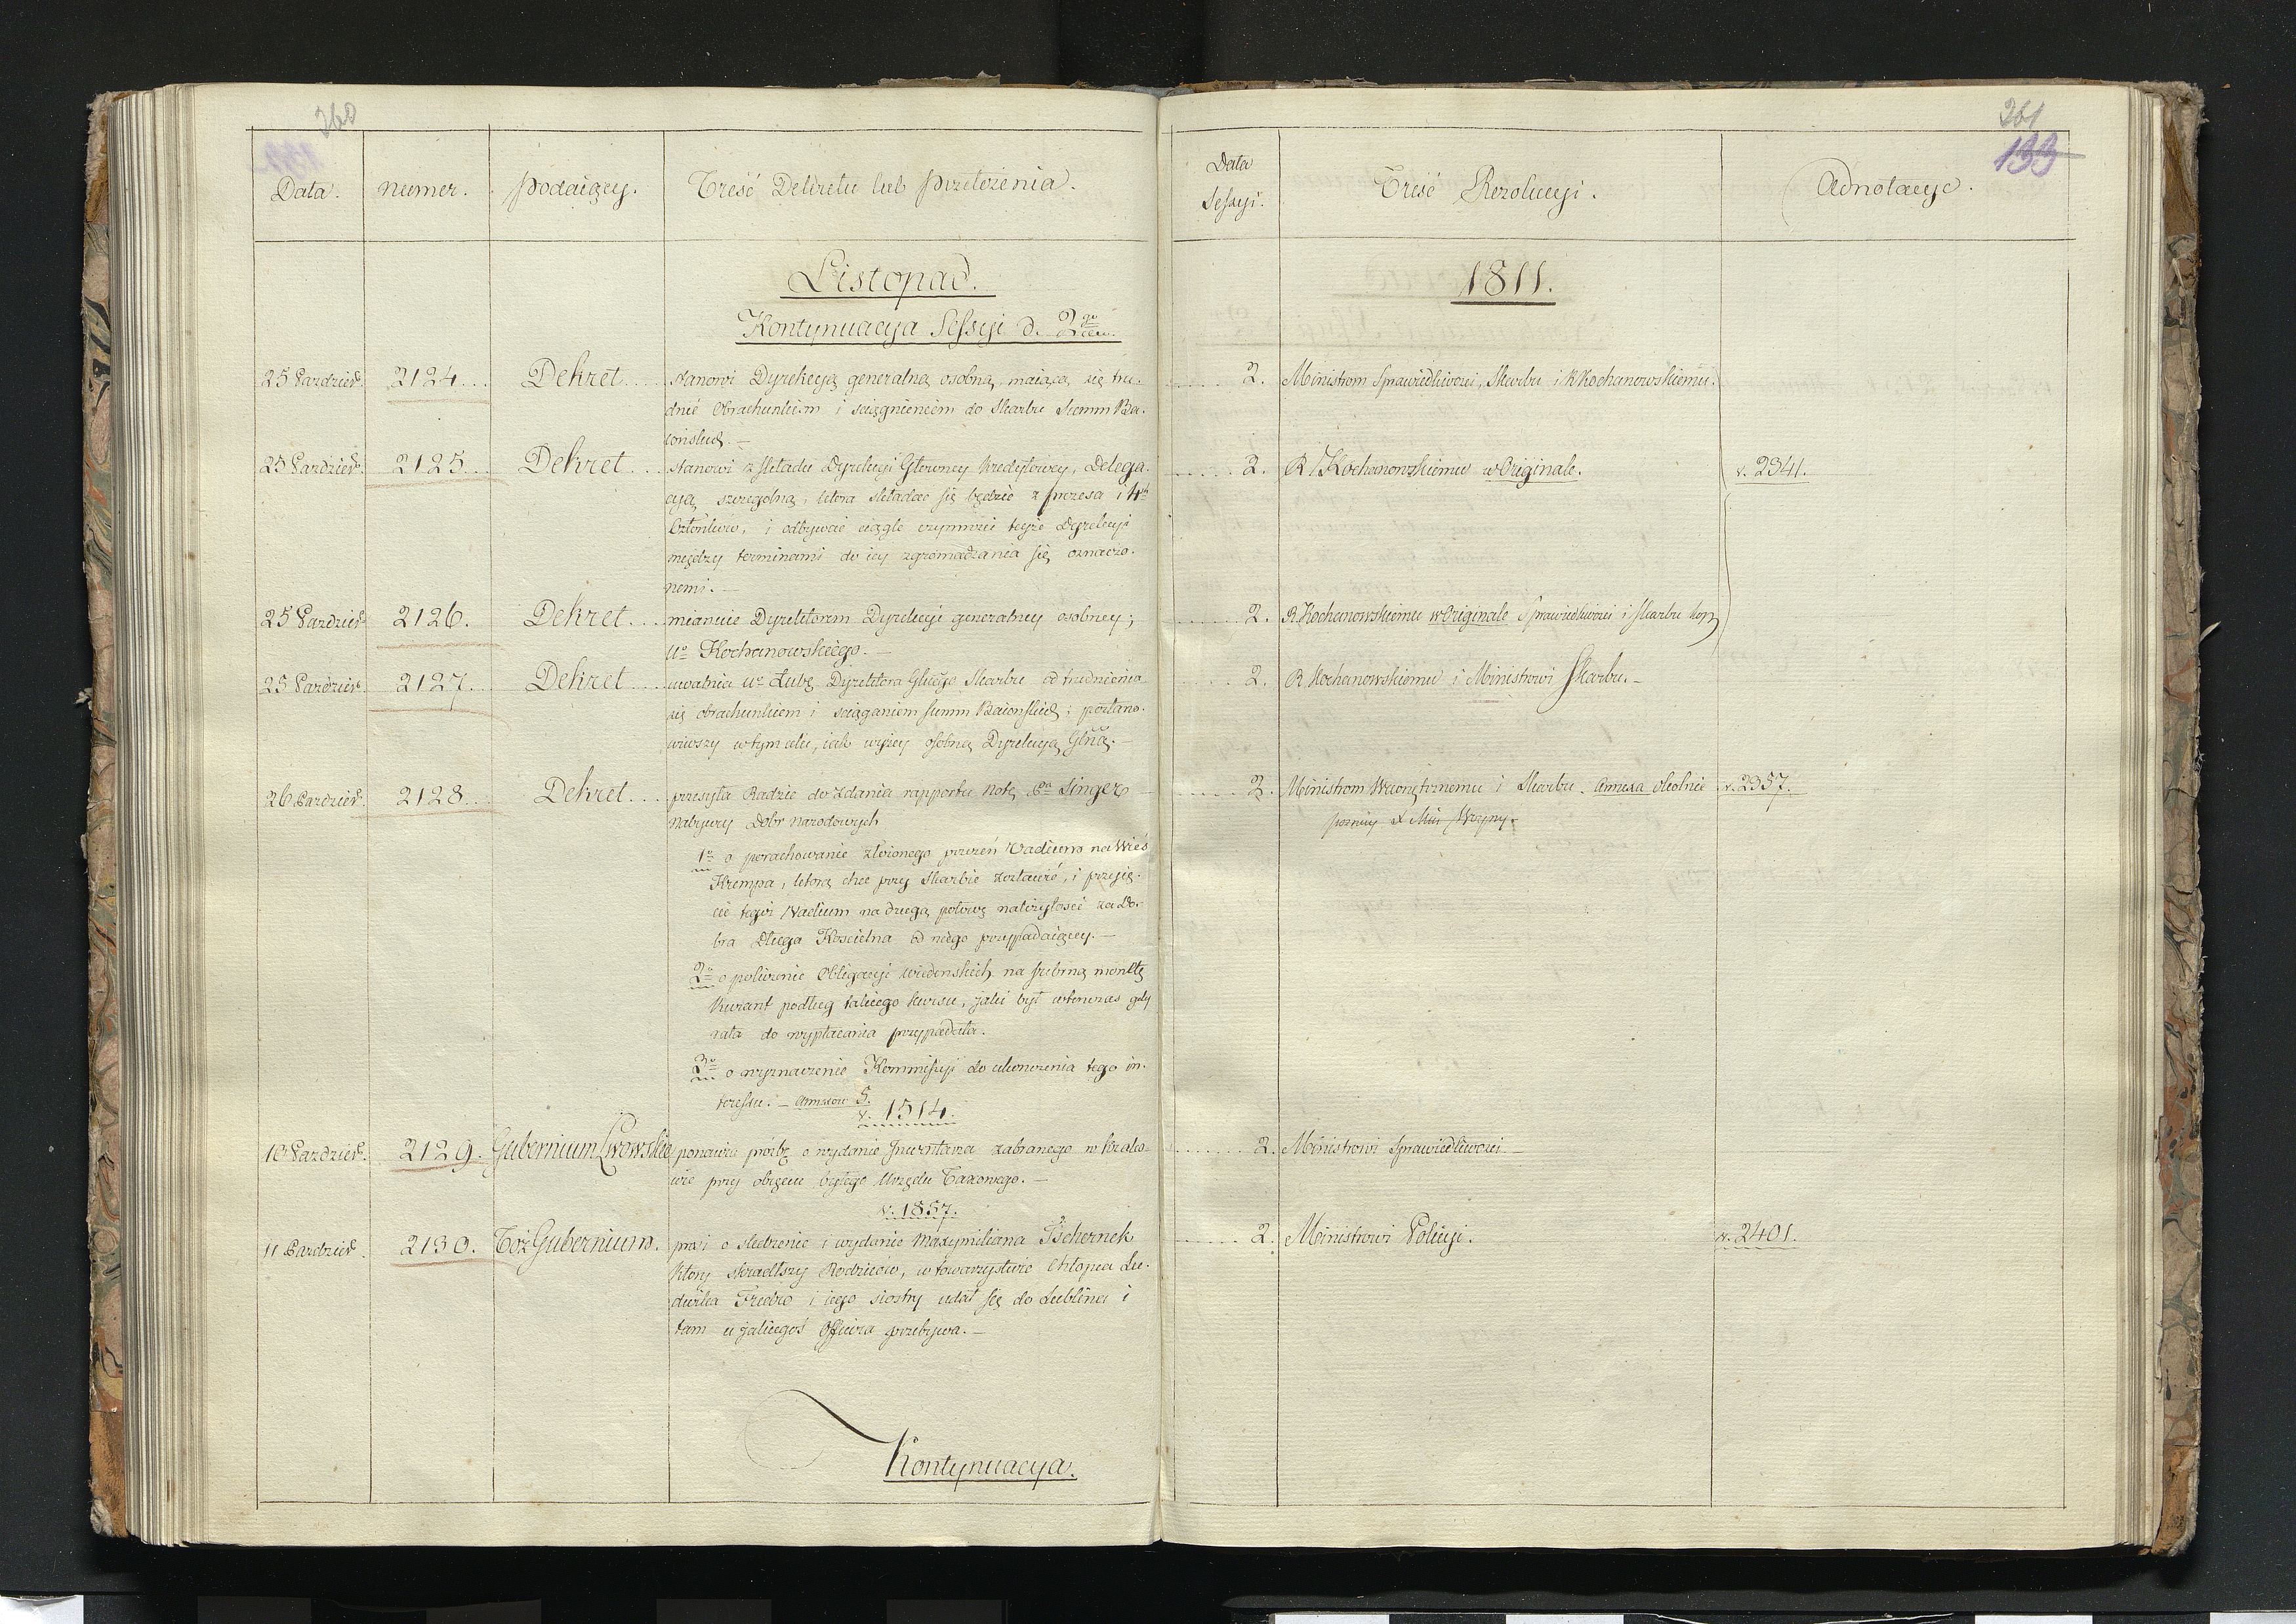 360
Data.
numer.
podaiący.
Treść Dekretu lub przełożenia.
Listopad.
Kontynuacya Sessyi d. 2go
25 Paździer. 2124. Dekret stanowi Dyrekcyą generalną osobną, maiącą się tru-
dnić Obrachunkiem i ściągnieniem do Skarbu Summ Ba-
iońskich. —
25 Paździer. 2125. Dekret stanowi z składu Dyrekcyi Główney Kredytowey, Delega-
cyą szczególną, która składać się będzie z prezesa i 4ch
Członków, i odbywać ciągle czynności teyże Dyrekcyi
między terminami do iey zgromadzania się oznaczo-
nemi. —
25 Paździer. 2126. Dekret mianuie Dyrektorem Dyrekcyi generalney osobney;
Uo Kochanowskiego. —
25 Paździer. 2127. Dekret uwalnia Uo Łubę Dyrektora Skarbu od trudnienia
się obrachunkiem i ściąganiem summ Baiońskich; postano-
wiwszy w tym celu, iak wyżey osobną Dyrekcyą Glną. —
26 Paździer. 2128. Dekret przesyła Radzie do zdania rapportu notę Singer
Nabywcy Dobr Narodowych
1o o porachowanie złożonego przezeń Vadium na Wieś
Krempa, którą chce przy Skarbie zostawić, i przyię-
cie tegoż Vadium na drugą połowę należytości za Do-
bra Długa Kościelna od niego przypadaiącey. —
2o o policzenie Obligacyi wiedenskich na srebrną monetę
Kurant podług takiego kursu, jaki był wtenczas gdy
rata do wypłacania przypadała.
3o o wyznaczenie Kommissyi do ukończenia tego in-
teressu. — Annexow 5.
v. 1514.
10 Paździer. 2129. Gubernium Lwowskie ponawia prośbę o wydanie Inwentarza zabranego w Krako-
wie przy obięciu byłego Urzędu Taxowego. —
v. 1857.
11 Paździer. 2130. Toż Gubernium. prosi o śledzenie i wydanie Maxymiliana Tschernek
który skradłszy Rodziców, w towarzystwie Chłopca Lu-
dwika Fredro i iego siostry udał się do Lublina i
tam u jakiegoś Officera przebywa. —
Kontynuacya.
361
133
Data
Sessyi.
Treść Rezolucyi.
Adnotacye.
1811.
2. Ministrom Sprawiedliwości, Skarbu i R Kochanowskiemu.
2. R Kochanowskiemu w Originale. v. 2341.
2. R. Kochanowskiemu w Originale Sprawiedliwości i Skarbu Kop
2. R Kochanowskiemu i Ministrowi Skarbu. —
2. Ministrom Wewnętrznemu i Skarbu. Annexa v. 2357.
Wojny.
2. Ministrowi Sprawiedliwości —
2. Ministrowi Policyi. v. 2401.